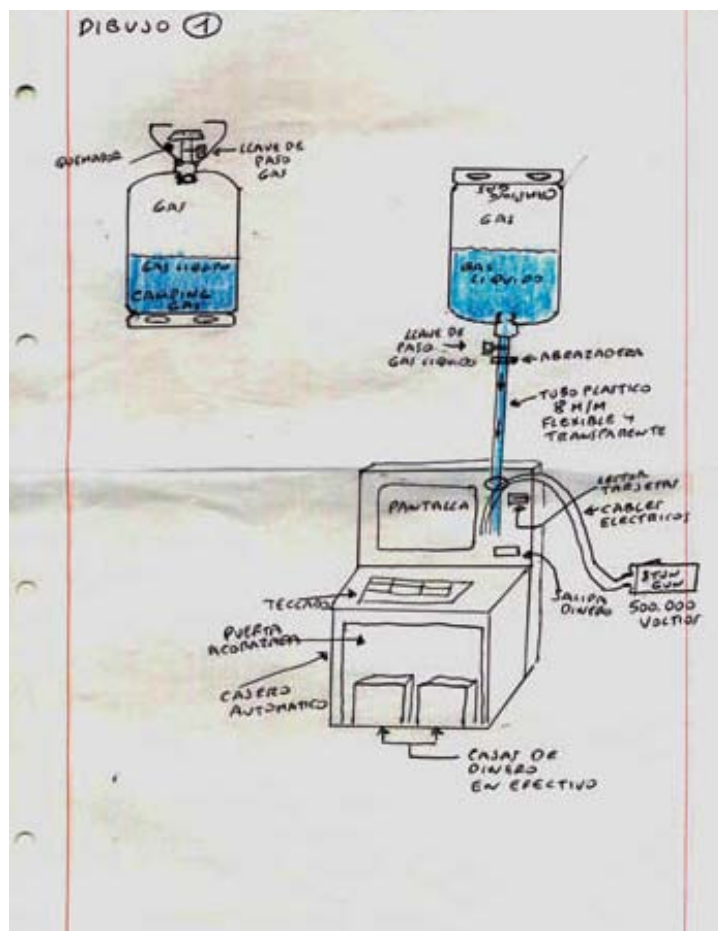 DIBUJO 1
QUEMADOR
LLAVE DE
PASO
GAS
GAS
GAS LIQUIDO
CAMPING
GAS
CAMPING GAS
GAS
GAS
LIQUIDO
LLAVE DE
PASO
GAS LIQUIDO
ABRAZADERA
TUBO PLASTICO
8 M/M
FLEXIBLE Y
TRANSPARENTE
PANTALLA
LECTOR
TARJETAS
CABLES
ELECTRICOS
STUN
GUN
500.000
VOLTIOS
SALIDA
DINERO
TECLADO
PUERTA
ACORAZADA
CAJERO
AUTOMATICO
CAJAS DE
DINERO
EN EFECTIVO